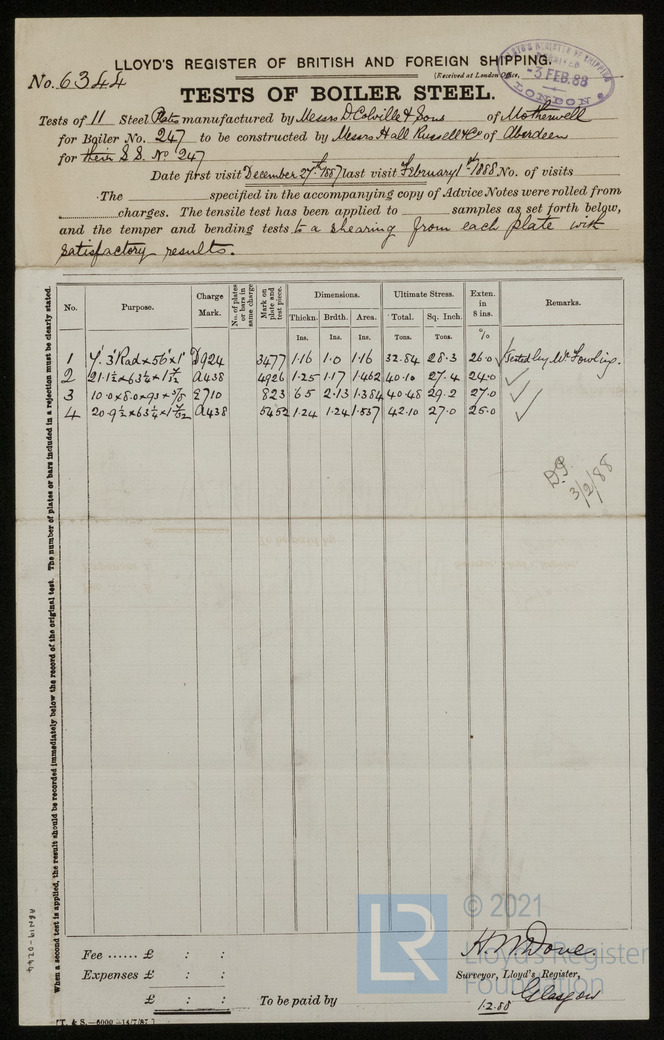 LLOYD'S REGISTER OF BRITISH AND FOREIGN SHIPPING.
No. 6344
(Received at London Office,
3 FEB. 88
LONDON
TESTS OF BOILER STEEL.
Tests of 11 Steel Plates manufactured by Messrs D Colville & Sons of Motherwell
for Boiler No. 247 to be constructed by Messrs Hall Russell & Co of Aberdeen
for their S.S. No 247
Date first visit December 27th 1887 last visit February 1st 1888 No. of visits
The specified in the accompanying copy of Advice Notes were rolled from
charges. The tensile test has been applied to samples as set forth below,
and the temper and bending tests to a shearing from each plate with
satisfactory results.
No. Purpose. Charge Mark. No. of plates or bars in same charge Mark on plate and test piece. Dimensions. Ultimate Stress. Exten. in 8 ins. Remarks.
Thickn. Brdth. Area. Total. Sq. Inch.
Ins. Ins. Ins. Tons. Tons. %
1 3" Rad x 56" x 1" D924 3477 1.16 1.0 1.16 32.84 28.3 26.0 Tested by Mr
2 21.1½ x 63¼ x 1 7/32 A438 4926 1.25 1.17 1.462 40.10 27.4 24.0
3 10.0 x 8.0 x 93 x 5/8 E710 823 65 2.13 1.384 40.48 29.2 27.0
4 20.9½ x 63¼ x 1 7/32 A438 5452 1.24 1.24 1.537 42.10 27.0 25.0
3/2/88
When a second test is applied, the result should be recorded immediately below the record of the original test. The number of plates or bars included in a rejection must be clearly stated.
© 2021
LR
Lloyd's Register
Foundation
Fee ...... £ : :
Expenses £ : :
£ : :
To be paid by
H. W. Dove.
Surveyor, Lloyd's Register,
Glasgow
1.2.88
[T. & S.—6000—14/7/87.]